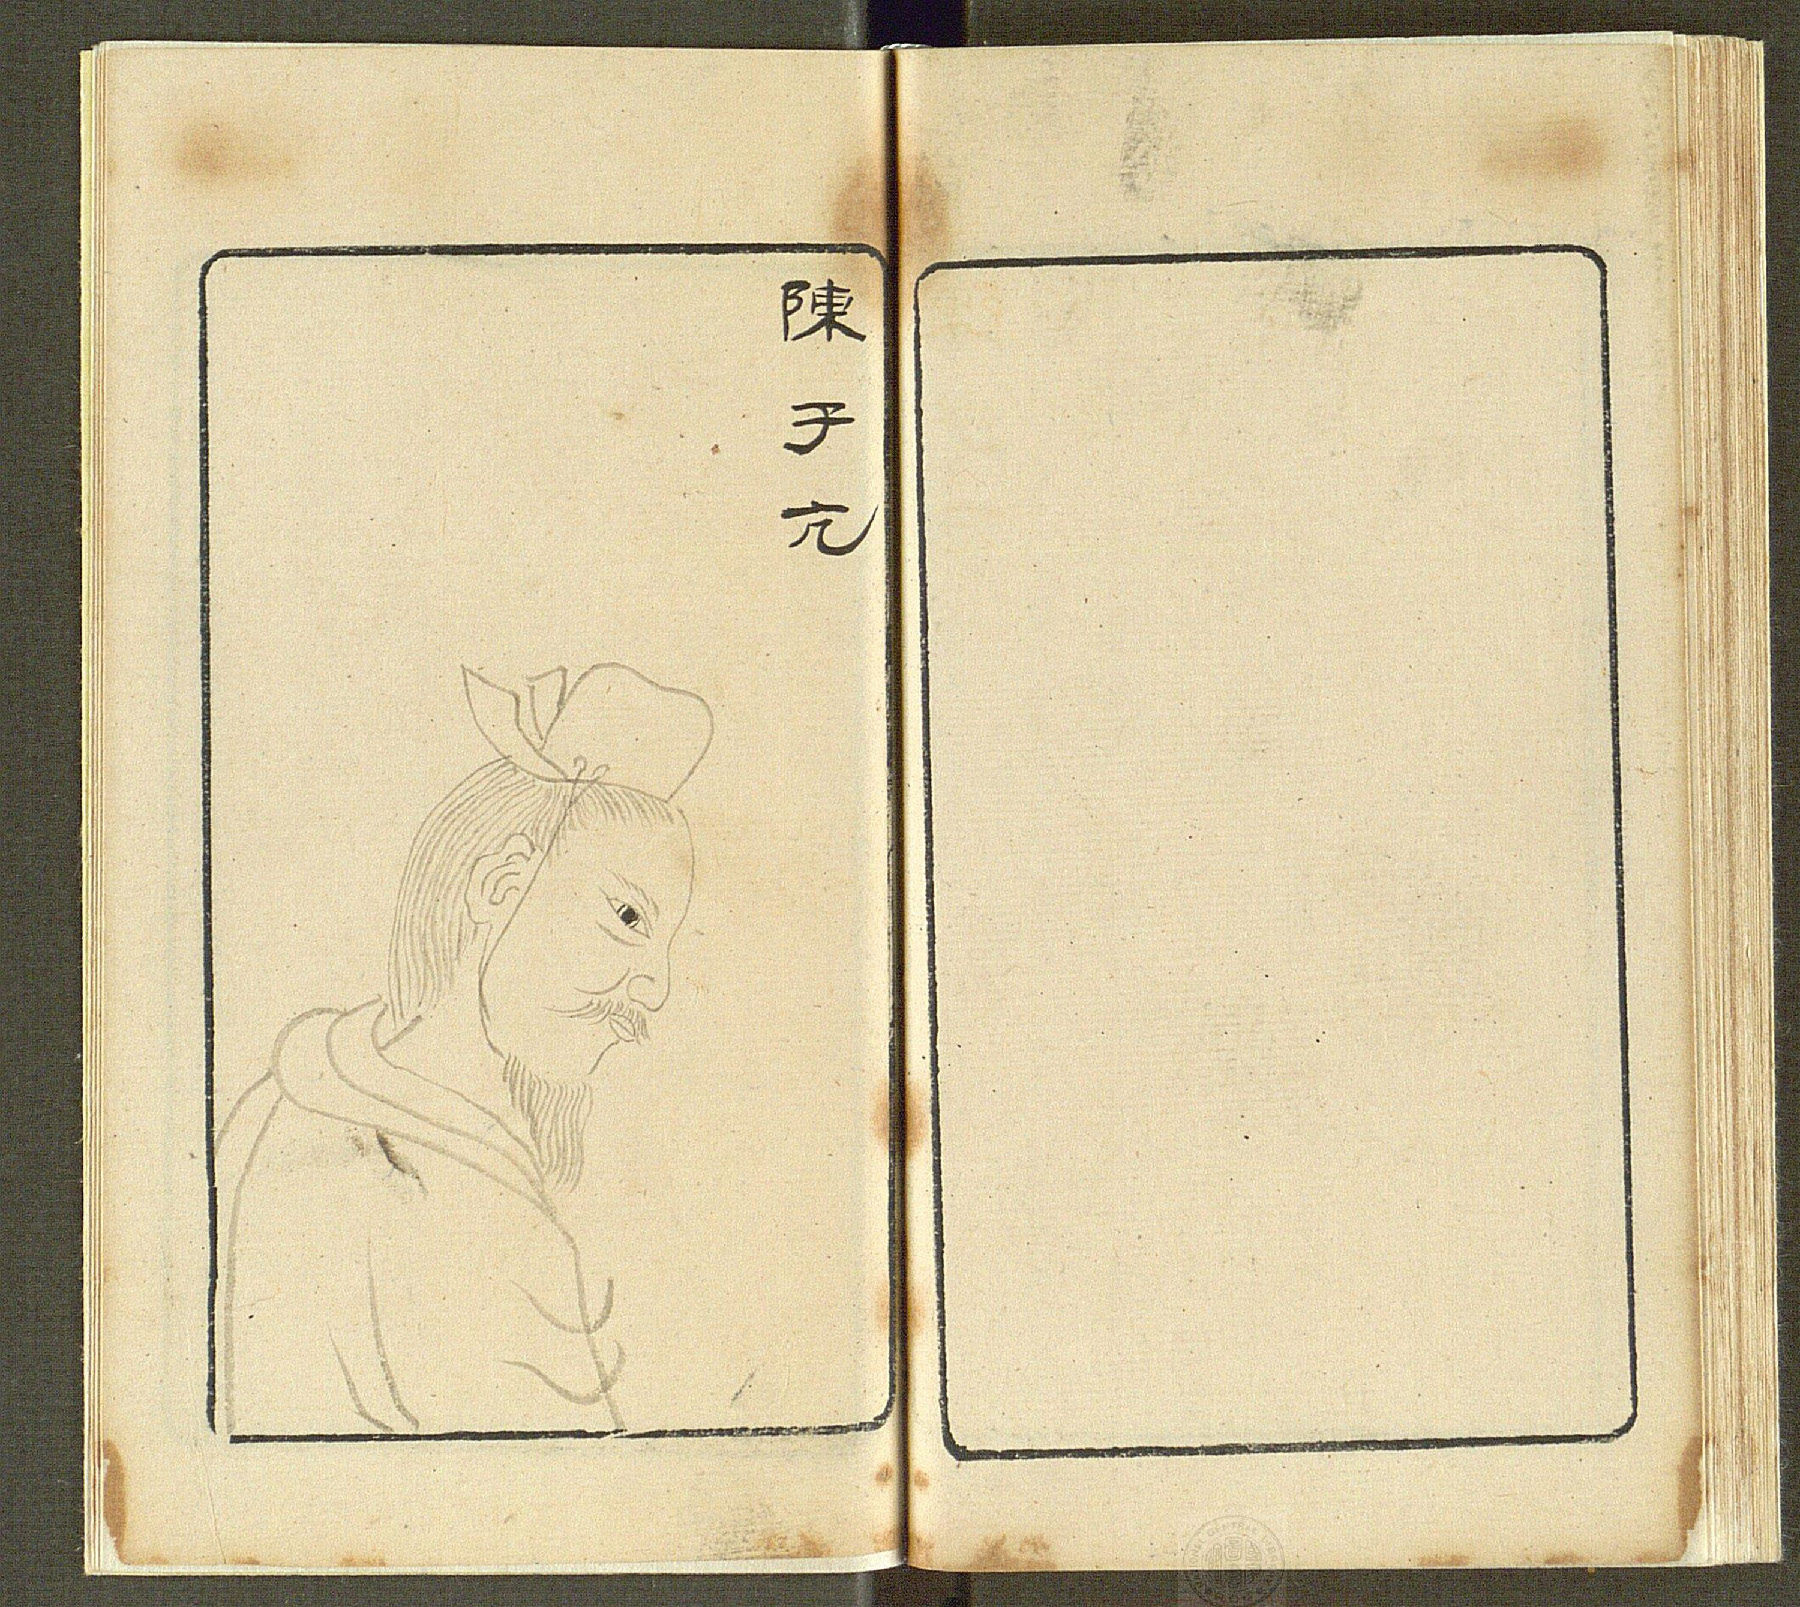 陳子亢